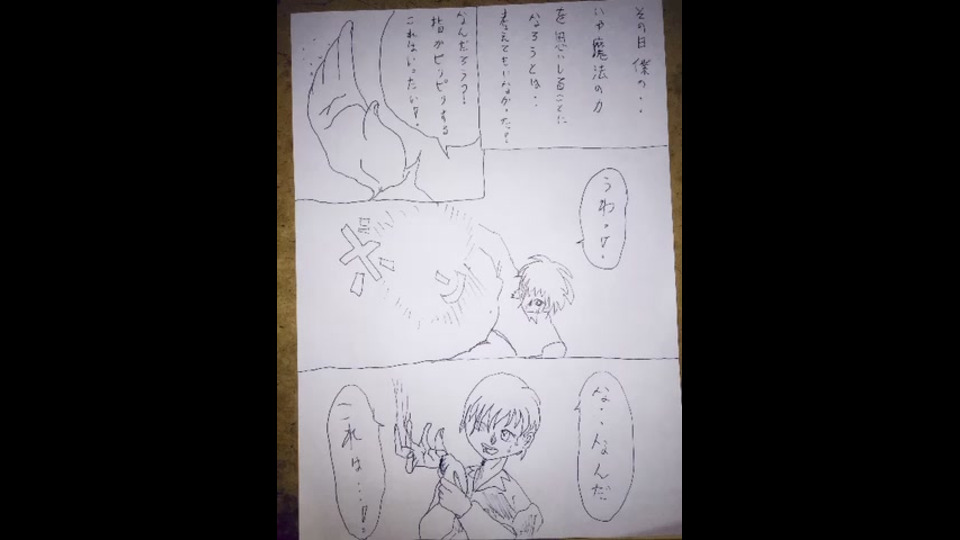 その日 僕の・・
いや魔法の力
を思いしることに
なろうとは・・
考えてもいなかった!
なんだろう?
指がピリピリする
これはいったい!
うわっ!
ボン
な・・なんだ
これは・・・!